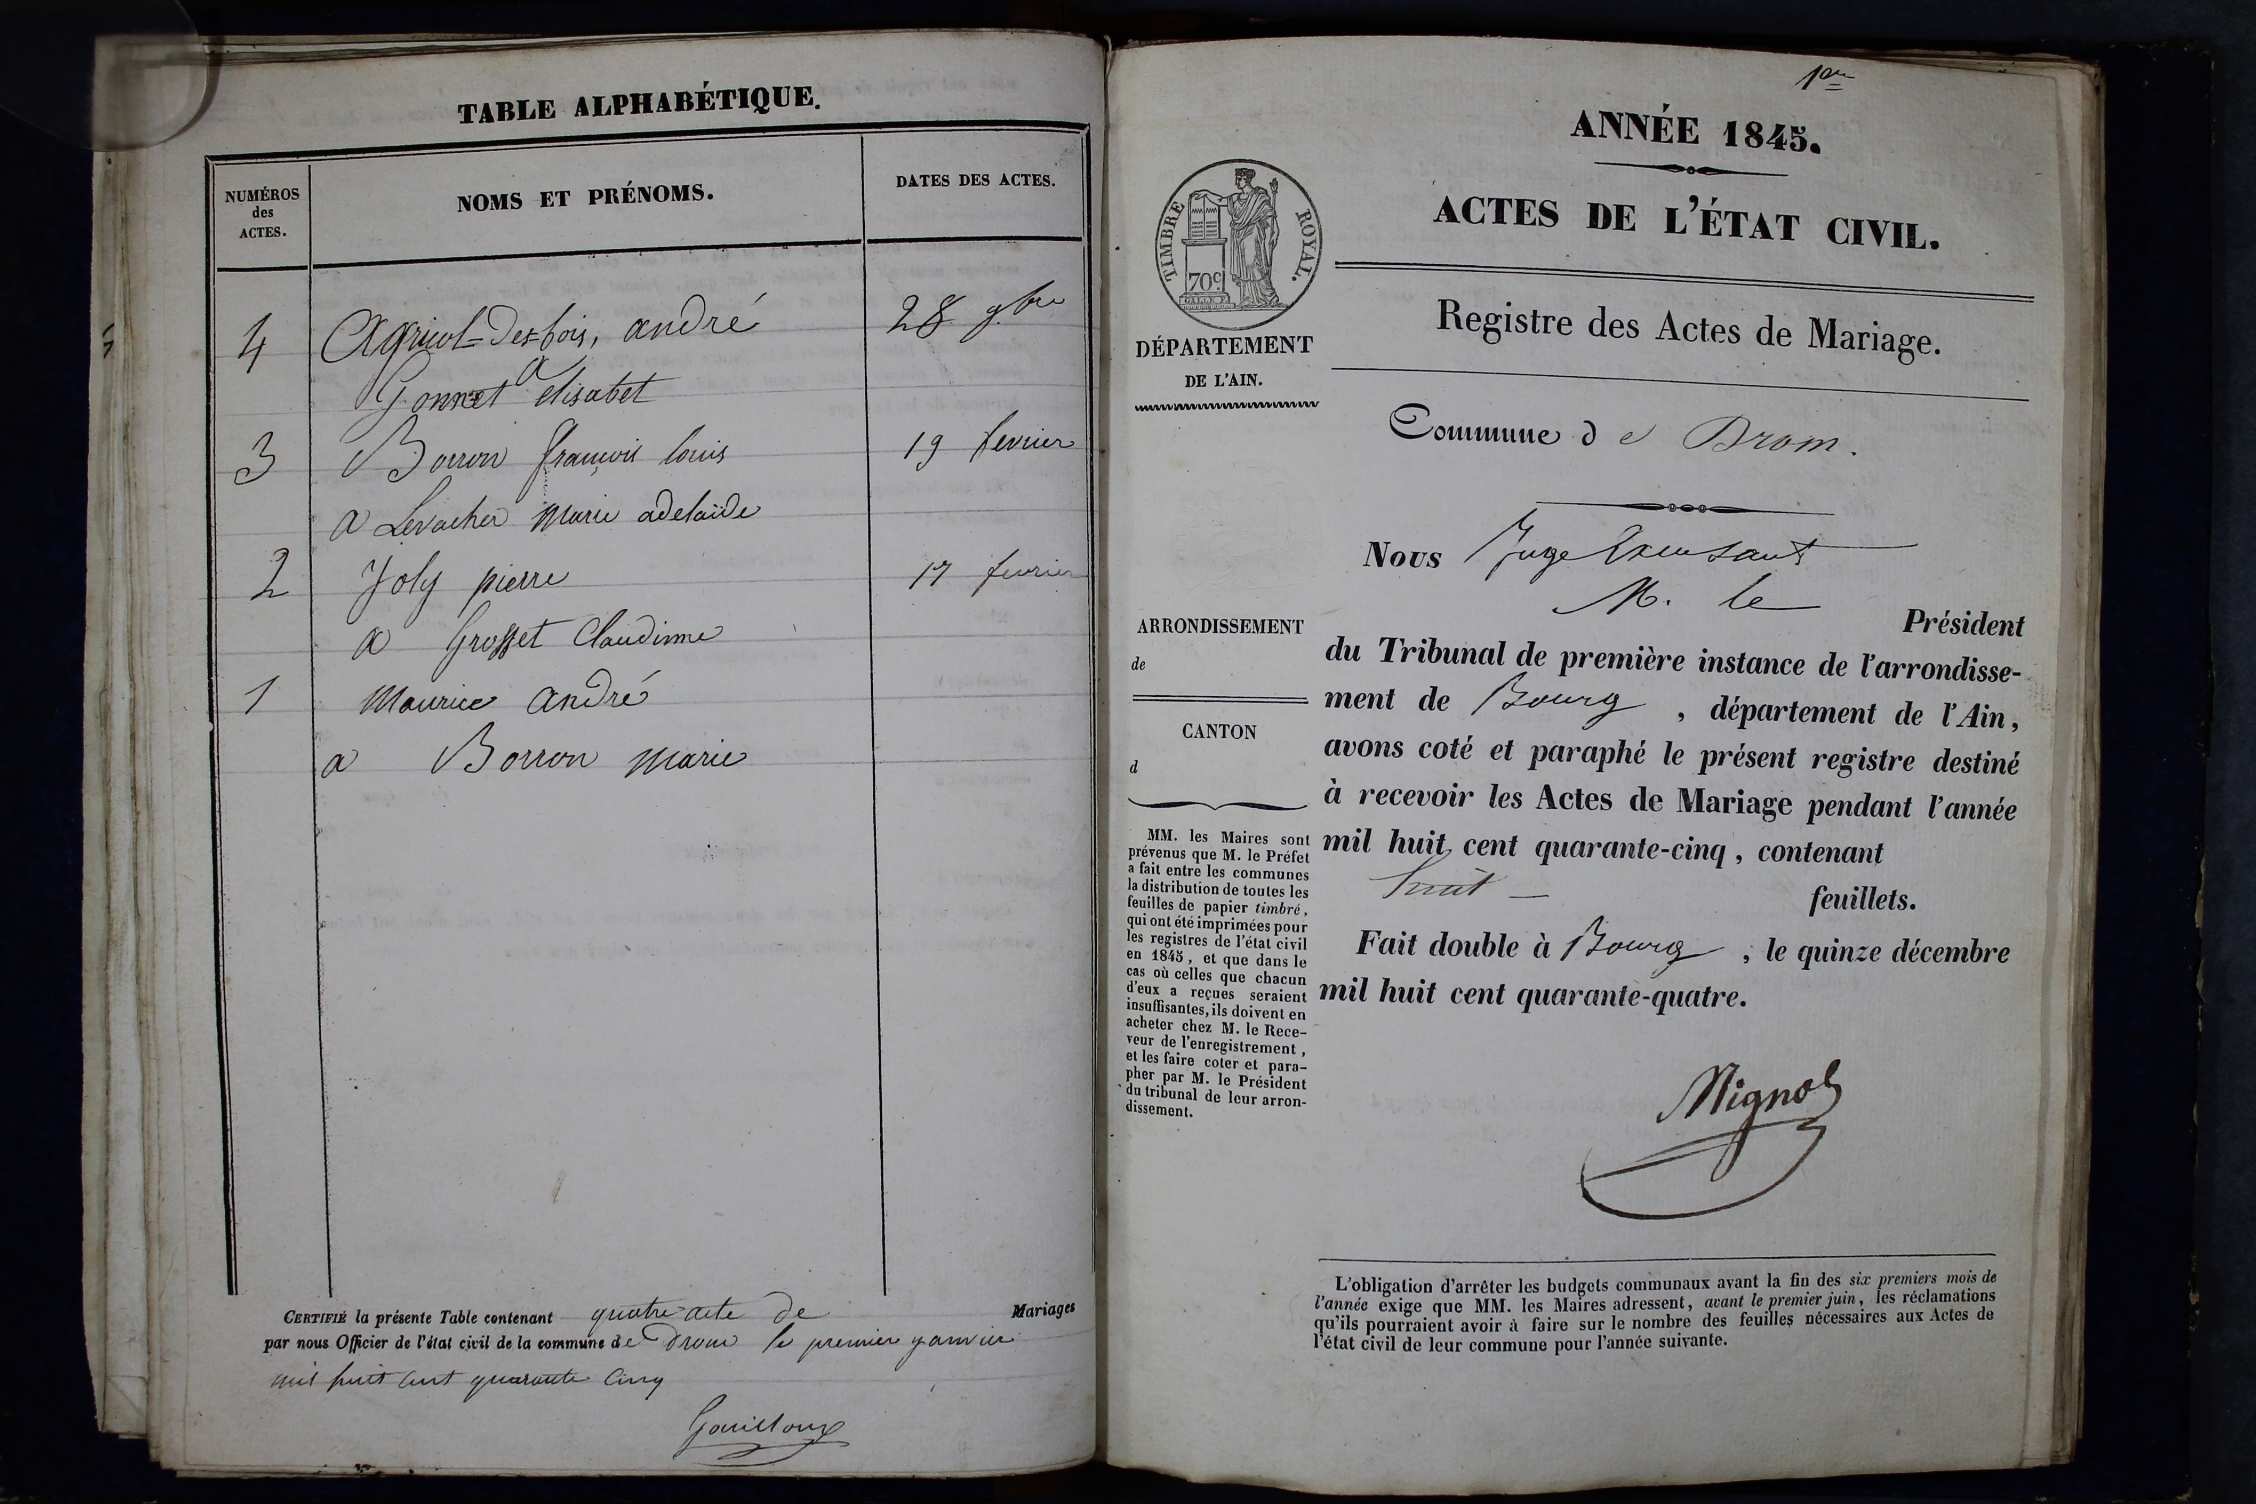 TABLE ALPHABÉTIQUE.
NUMÉROS
des
ACTES.
NOMS ET PRÉNOMS.
DATES DES ACTES.
4 Agricol=Desbois, andré 28 9.bre
a
Gonnet elisabet
3 Borron françois louis 19 fevrier
a Levacher marie adelaïde
2 Joly pierre 17 fevrier
a Grosset Claudinne
1 Maurice andré
a Borron marie
CERTIFIÉ la présente Table contenant quatre acte de Mariages
par nous Officier de l'état civil de la commune de Drom le premier janvier
mil huit cent quarante cinq
Gouilloux
1er
ANNÉE 1845.
ACTES DE L'ÉTAT CIVIL.
TIMBRE ROYAL.
70c
DÉPARTEMENT
DE L'AIN.
Registre des Actes de Mariage.
Commune de Drom.
Nous Juge
M. le Président
du Tribunal de première instance de l'arrondisse-
ment de Bourg, département de l'Ain,
avons coté et paraphé le présent registre destiné
à recevoir les Actes de Mariage pendant l'année
mil huit cent quarante-cinq, contenant
huit — feuillets.
Fait double à Bourg, le quinze décembre
mil huit cent quarante-quatre.
Mignot
ARRONDISSEMENT
de
CANTON
d
MM. les Maires sont
prévenus que M. le Préfet
a fait entre les communes
la distribution de toutes les
feuilles de papier timbré,
qui ont été imprimées pour
les registres de l'état civil
en 1845, et que dans le
cas où celles que chacun
d'eux a reçues seraient
insuffisantes, ils doivent en
acheter chez M. le Rece-
veur de l'enregistrement,
et les faire coter et para-
pher par M. le Président
du tribunal de leur arron-
dissement.
L'obligation d'arrêter les budgets communaux avant la fin des six premiers mois de
l'année exige que MM. les Maires adressent, avant le premier juin, les réclamations
qu'ils pourraient avoir à faire sur le nombre des feuilles nécessaires aux Actes de
l'état civil de leur commune pour l'année suivante.